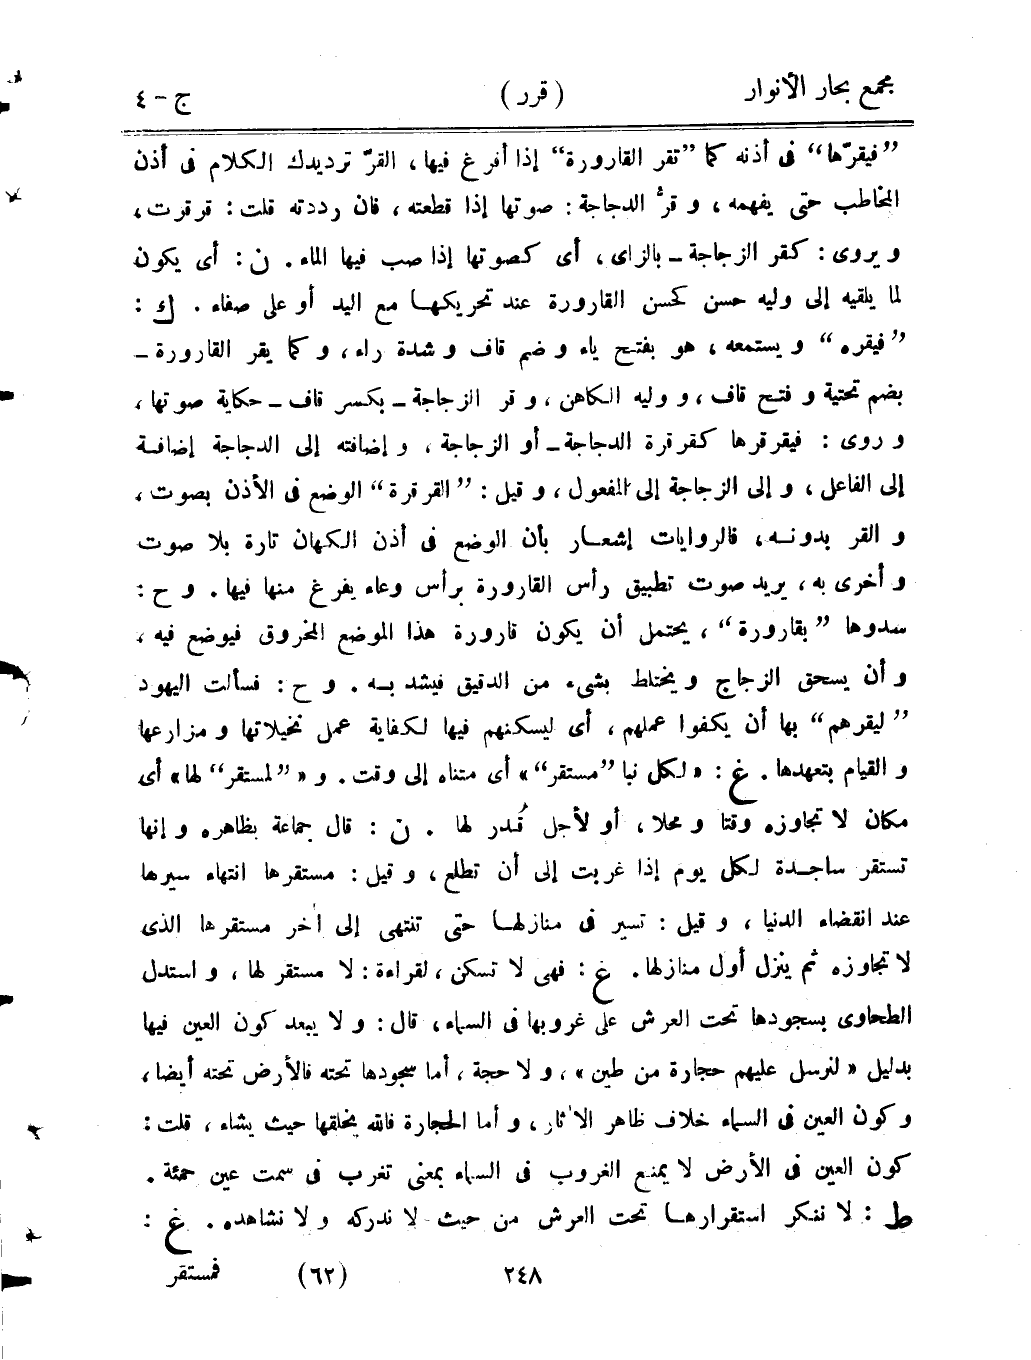 مجمع بحار الأنوار ( قرر ) ج - ٤
”فيقرّها“ فى أذنه كما ”تقر القارورة“ إذا أفرغ فيها، القرّ ترديدك الكلام فى أذن
المخاطب حتى يفهمه، و قرُّ الدجاجة: صوتها إذا قطعته، فان رددته قلت: قرقرت،
و يروى: كقر الزجاجة ــ بالزاى، أى كصوتها إذا صب فيها الماء. ن: أى يكون
لما يلقيه إلى وليه حسن كحسن القارورة عند تحريكها مع اليد أو على صفاء. ك:
”فيقره“ و يستمعه، هو بفتح ياء و ضم قاف و شدة راء، و كما يقر القارورة ــ
بضم تحتية و فتح قاف، و وليه الكاهن، و قر الزجاجة ــ بكسر قاف ــ حكاية صوتها،
و روى: فيقرقرها كقرقرة الدجاجة ــ أو الزجاجة، و إضافته إلى الدجاجة إضافة
إلى الفاعل، و إلى الزجاجة إلى المفعول، و قيل: ”القرقرة“ الوضع فى الأذن بصوت،
و القر بدونه، فالروايات إشعار بأن الوضع فى أذن الكهان تارة بلا صوت
و أخرى به، يريد صوت تطبيق رأس القارورة برأس وعاء يفرغ منها فيها. و ح:
سدوها ”بقارورة“، يحتمل أن يكون قارورة هذا الموضع المخروق فيوضع فيه،
و أن يسحق الزجاج و يختاط بشىء من الدقيق فيشد به. و ح: فسألت اليهود
”ليقرهم“ بها أن يكفوا عملهم، أى ليسكنهم فيها لكفاية عمل نخيلاتها و مزارعها
و القيام بتعهدها. غ: «لكل نبا ”مستقر“» أى متناه إلى وقت. و «”لمستقر“ لها» أى
مكان لا تجاوزه وقتا و محلا، أو لأجل قُدر لها. ن: قال جماعة بظاهره و إنها
تستقر ساجدة لكل يوم إذا غربت إلى أن تطلع، و قيل: مستقرها انتهاء سيرها
عند انقضاء الدنيا، و قيل: تسير فى منازلها حتى تنتهى إلى أخر مستقرها الذى
لا تجاوزه ثم ينزل أول منازلها. غ: فهى لا تسكن، لقراءة: لا مستقر لها، و استدل
الطحاوى بسجودها تحت العرش على غروبها فى السماء، قال: و لا يبعد كون العين فيها
بدليل «لنرسل عليهم حجارة من طين»، و لا حجة، أما سجودها تحته فالأرض تحته أيضا،
و كون العين فى السماء خلاف ظاهر الاٰثار، و أما الحجارة فالله يخلقها حيث يشاء، قلت:
كون العين فى الأرض لا يمنع الغروب فى السماء بمعنى تغرب فى سمت عين حمئة.
ط: لا ننكر استقرارها تحت العرش من حيث لا ندركه و لا نشاهده. غ:
٢٤٨ (٦٢) فمستقر